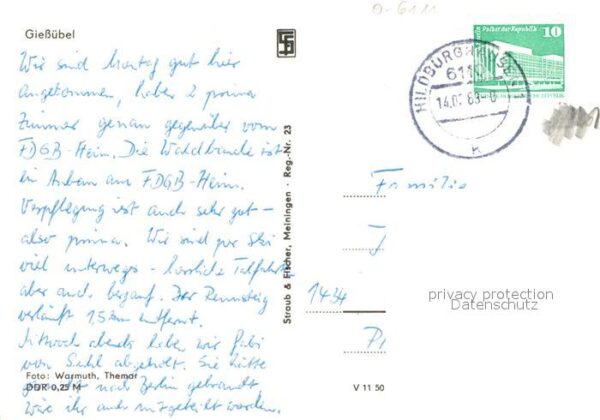 Gießübel
Wir sind Montag gut hier
angekommen, haben 2 prima
Zimmer genau gegenüber vom
FDGB-Heim. Die Waldbaude ist
ein Anbau am FDGB-Heim.
Verpflegung ist auch sehr gut -
also prima. Wir sind per Ski
viel unterwegs - herrliche Talfahrten
aber auch bergauf. Der Rennsteig
verläuft 1,5 km entfernt.
Mittwoch abends haben wir Gabi
von Suhl abgeholt. Sie hätte
nach Berlin gebraucht,
wie ihr auch mitgeteilt worden.
Foto: Warmuth, Themar
DDR 0,25 M
Straub & Fischer, Meiningen · Reg.-Nr. 23
V 11 50
0-6111
HILDBURGHAUSEN
611
14.02.83
K
Palast der Republik 10
Familie
J
1434
privacy protection
Datenschutz